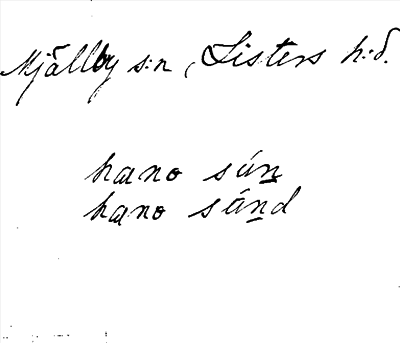 Mjällby s:n, Listers h:d.
hano sún
hano súnd